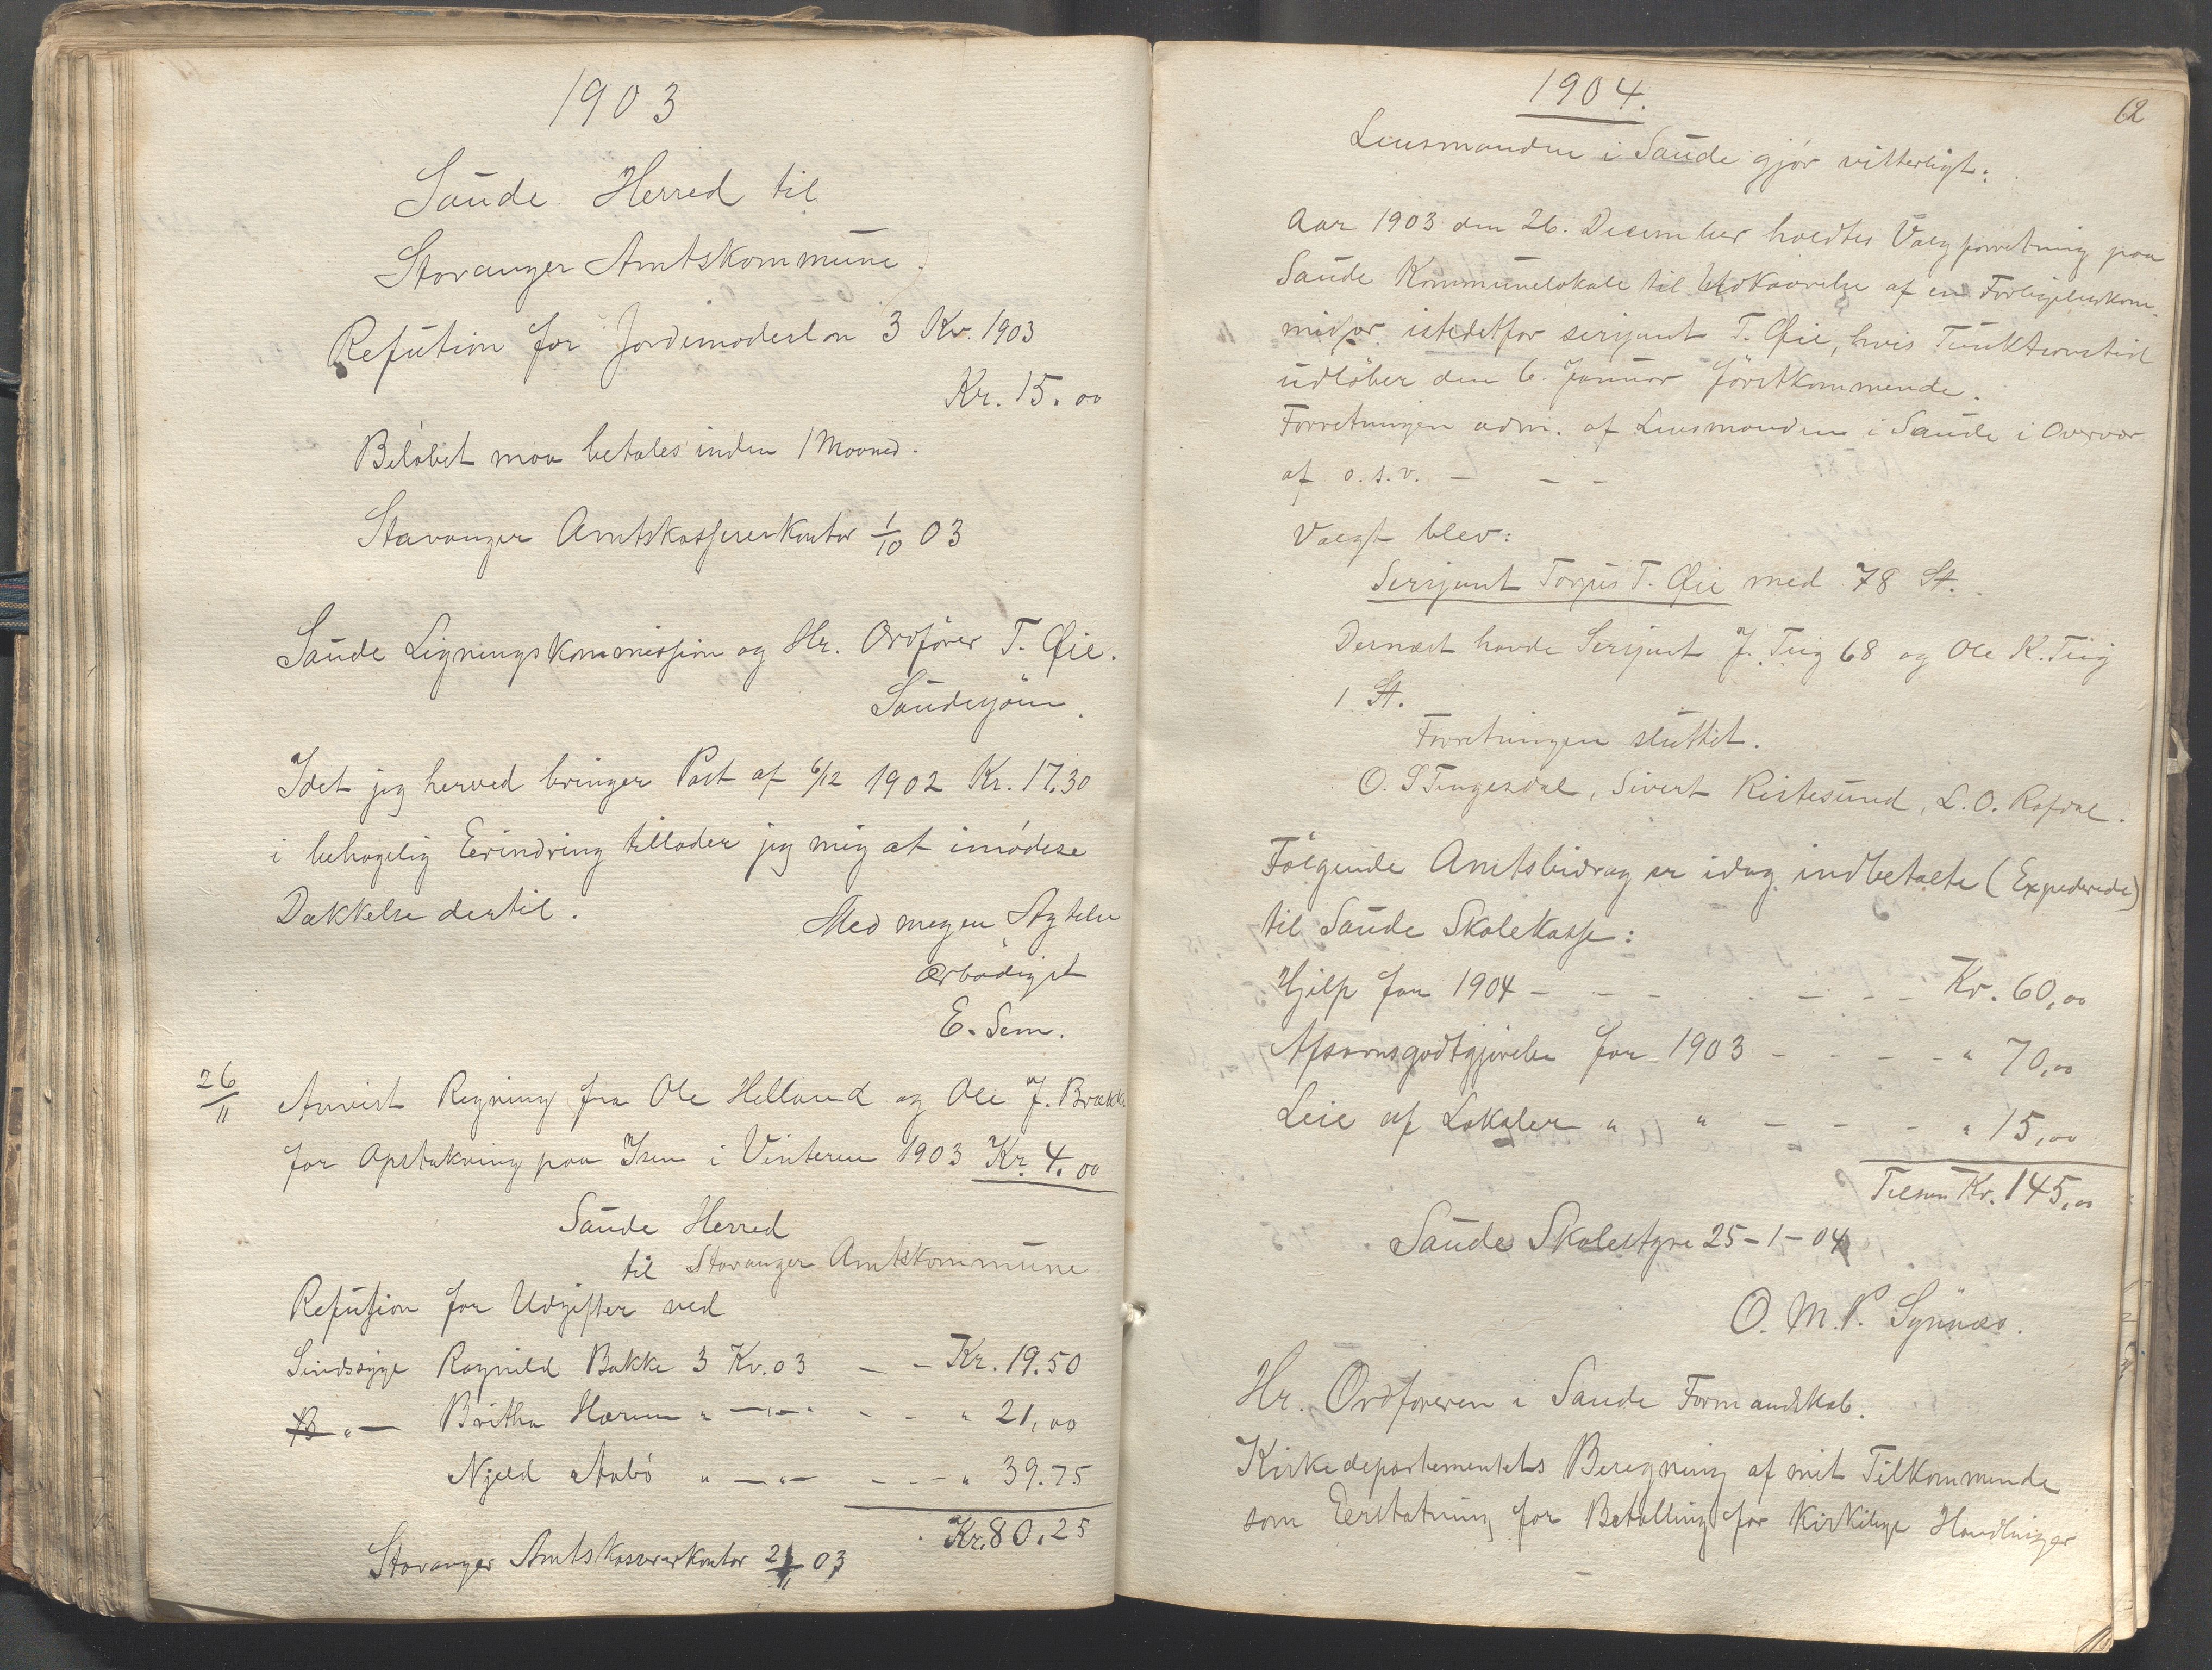 1903
Saude Herred til
Stavanger Amtskommune.
Refution for Jordemoderløn 3 Kv. 1903
Kr. 15.00
Beløbet maa betales inden 1 Maaned.
Stavanger Amtskasserer Kontor 1/10 03
Saude Ligningskommission og Hr. Ordfører T. Øie.
Saudesjøen.
Idet jeg herved bringer Post af 6/12 1902 Kr. 17.30
i behagelig Erindring tillader jeg mig at imødese
Dækkelse dertil.
Med megen Agtelse
Ærbødigst
E. Sem.
26/11 Anvist Regning fra Ole Helland og Ole J. Brække
for Opstakning paa Isen i Vinteren 1903 Kr. 4.00
Saude Herred
til Stavanger Amtskommune
Refusion for Udgifter ved
Sindssyge Ragnild Bakke 3 Kv. 03 — – Kr. 19.50
B „— Britha Hærum „ —„— – – „ 21,00
Njæld Aabö „ —„— – – „ 39.75
Kr. 80.25
Stavanger Amtskassererkontor 21/11 03
1904.
62
Lensmanden i Saude gjør vitterligt:
Aar 1903 den 26. December holdtes Valgforretning paa
Saude Kommunelokale til Udkaarelse af en Forligelseskom-
misjær istedetfor serjant T. Øie, hvis Funktionstid
udløber den 6. Januar förstkommende.
Forretningen adm. af Lensmanden i Saude i Overvær
af o.s.v. – – –
Valgt blev:
Serjant Torjus T. Øie med 78 St.
Dernæst havde Serjant J. Teig 68 og Ole K. Teig
1 St.
Forretningen sluttet.
O. S Tengesdal, Sivert Ristesund, L. O. Rafdal.
Følgende Amtsbidrag er idag indbetalte (Expederede)
til Saude Skolekasse:
Hjelp for 1904 – – – – – – Kr. 60,00
Afsavnsgodtgjørelse for 1903 – – – – „ 70,00
Leie af Lokaler „ „ – – – „ 15,00
Tilsam Kr. 145,00
Saude Skolestyre 25-1-04
O. M. P. Synnæs.
Hr. Ordføreren i Saude Formandskab.
Kirkedepartementets Beregning af mit Tilkommende
som Erstatning for Betalling for Kirkelige Handlinger